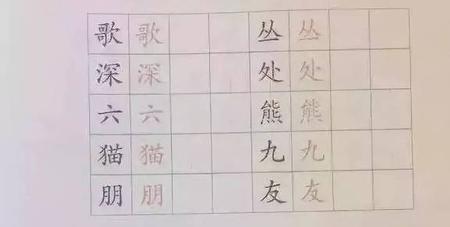 歌 歌 丛 丛
深 深 处 处
六 六 熊 熊
猫 猫 九 九
朋 朋 友 友